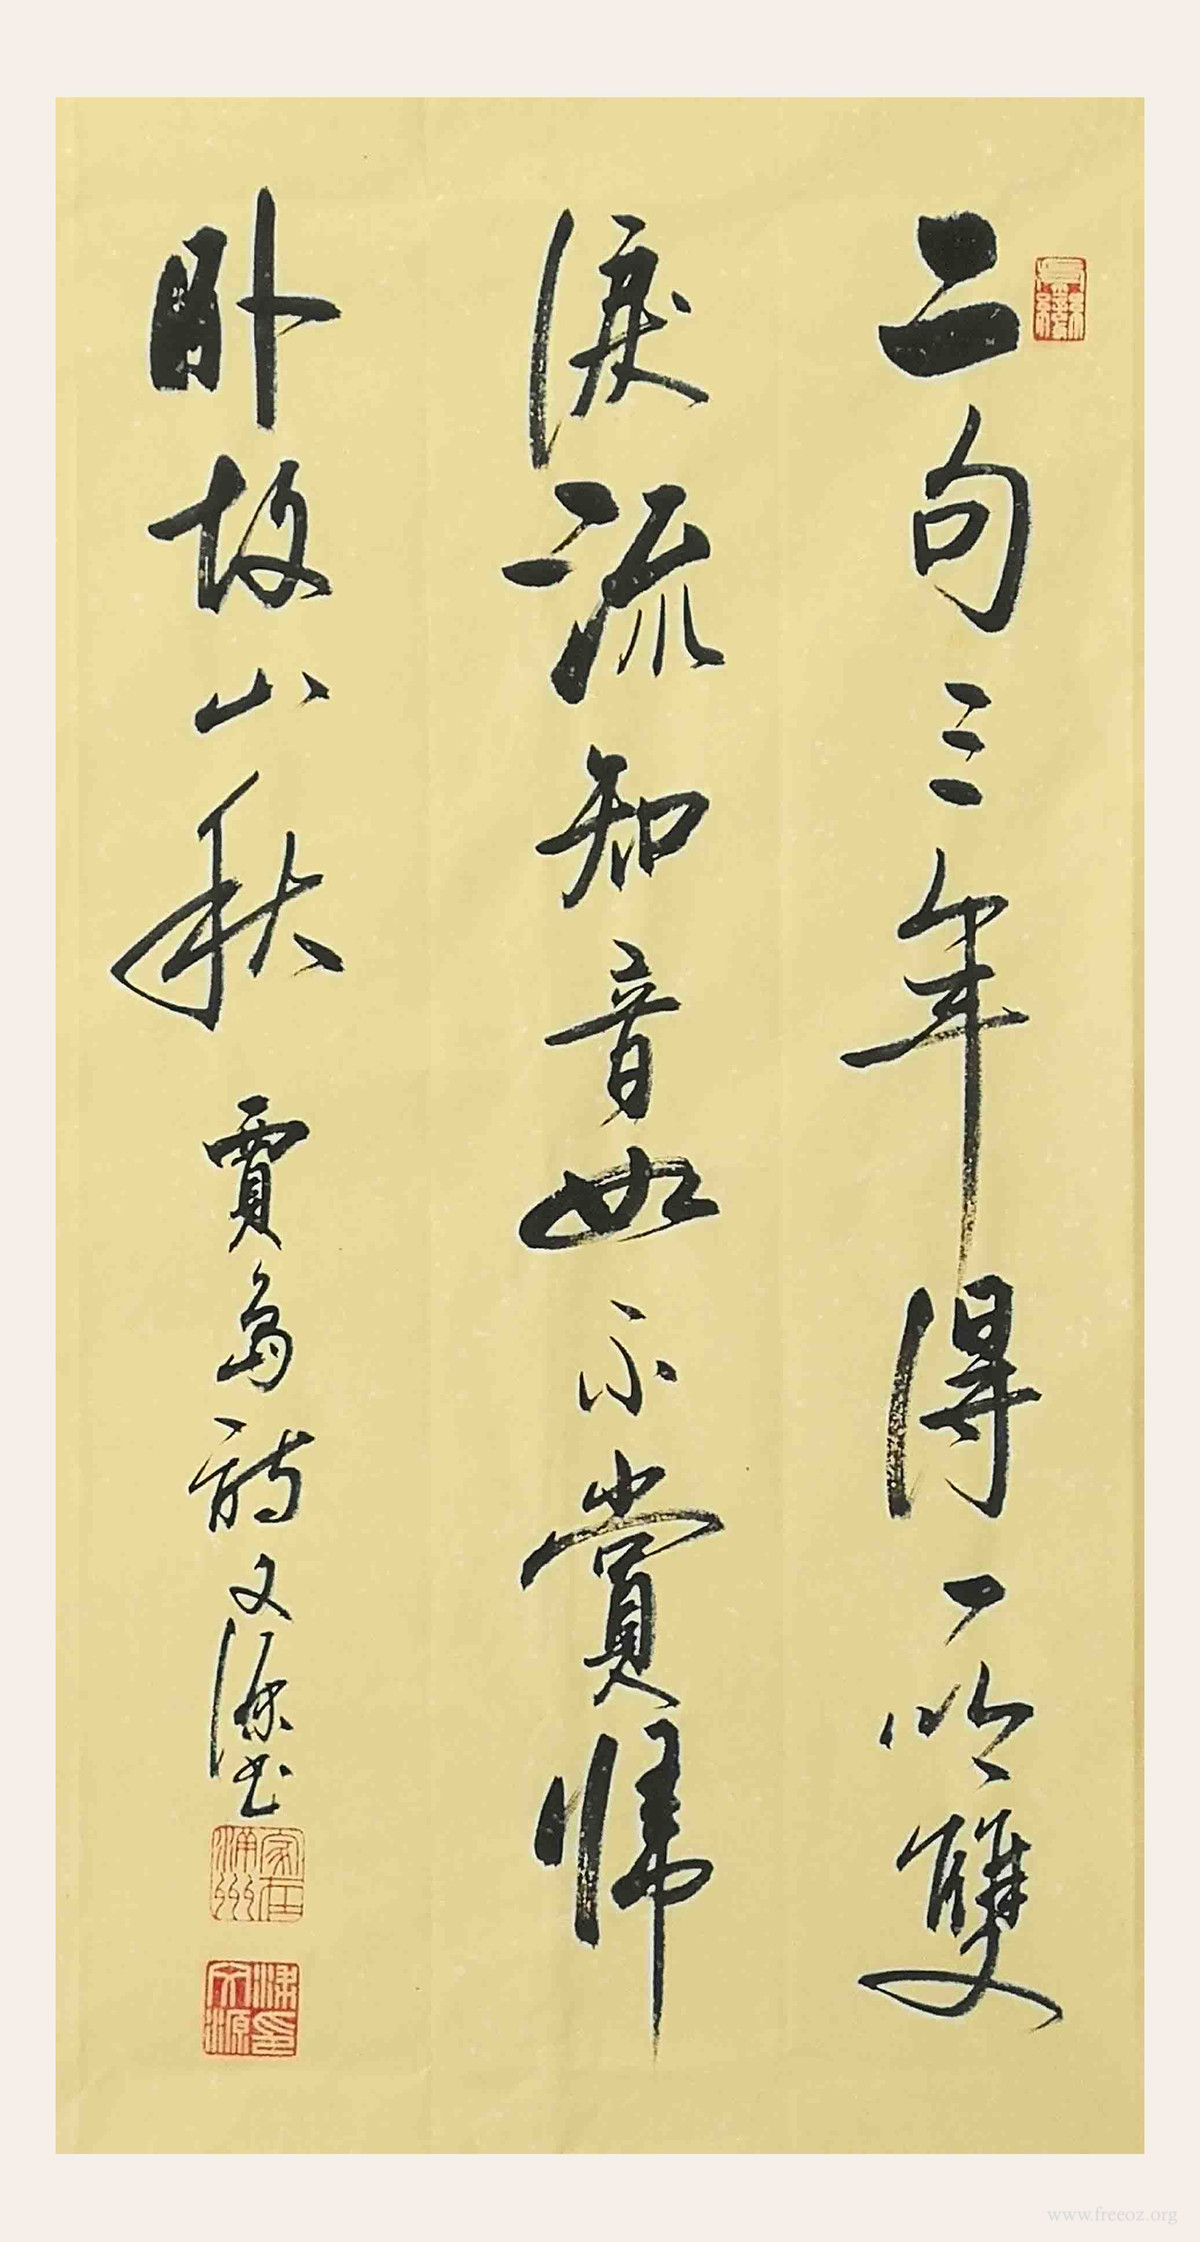 二句三年得一吟雙
淚流知音如不賞歸
卧故山秋 賈島詩文源書
www.freeoz.org